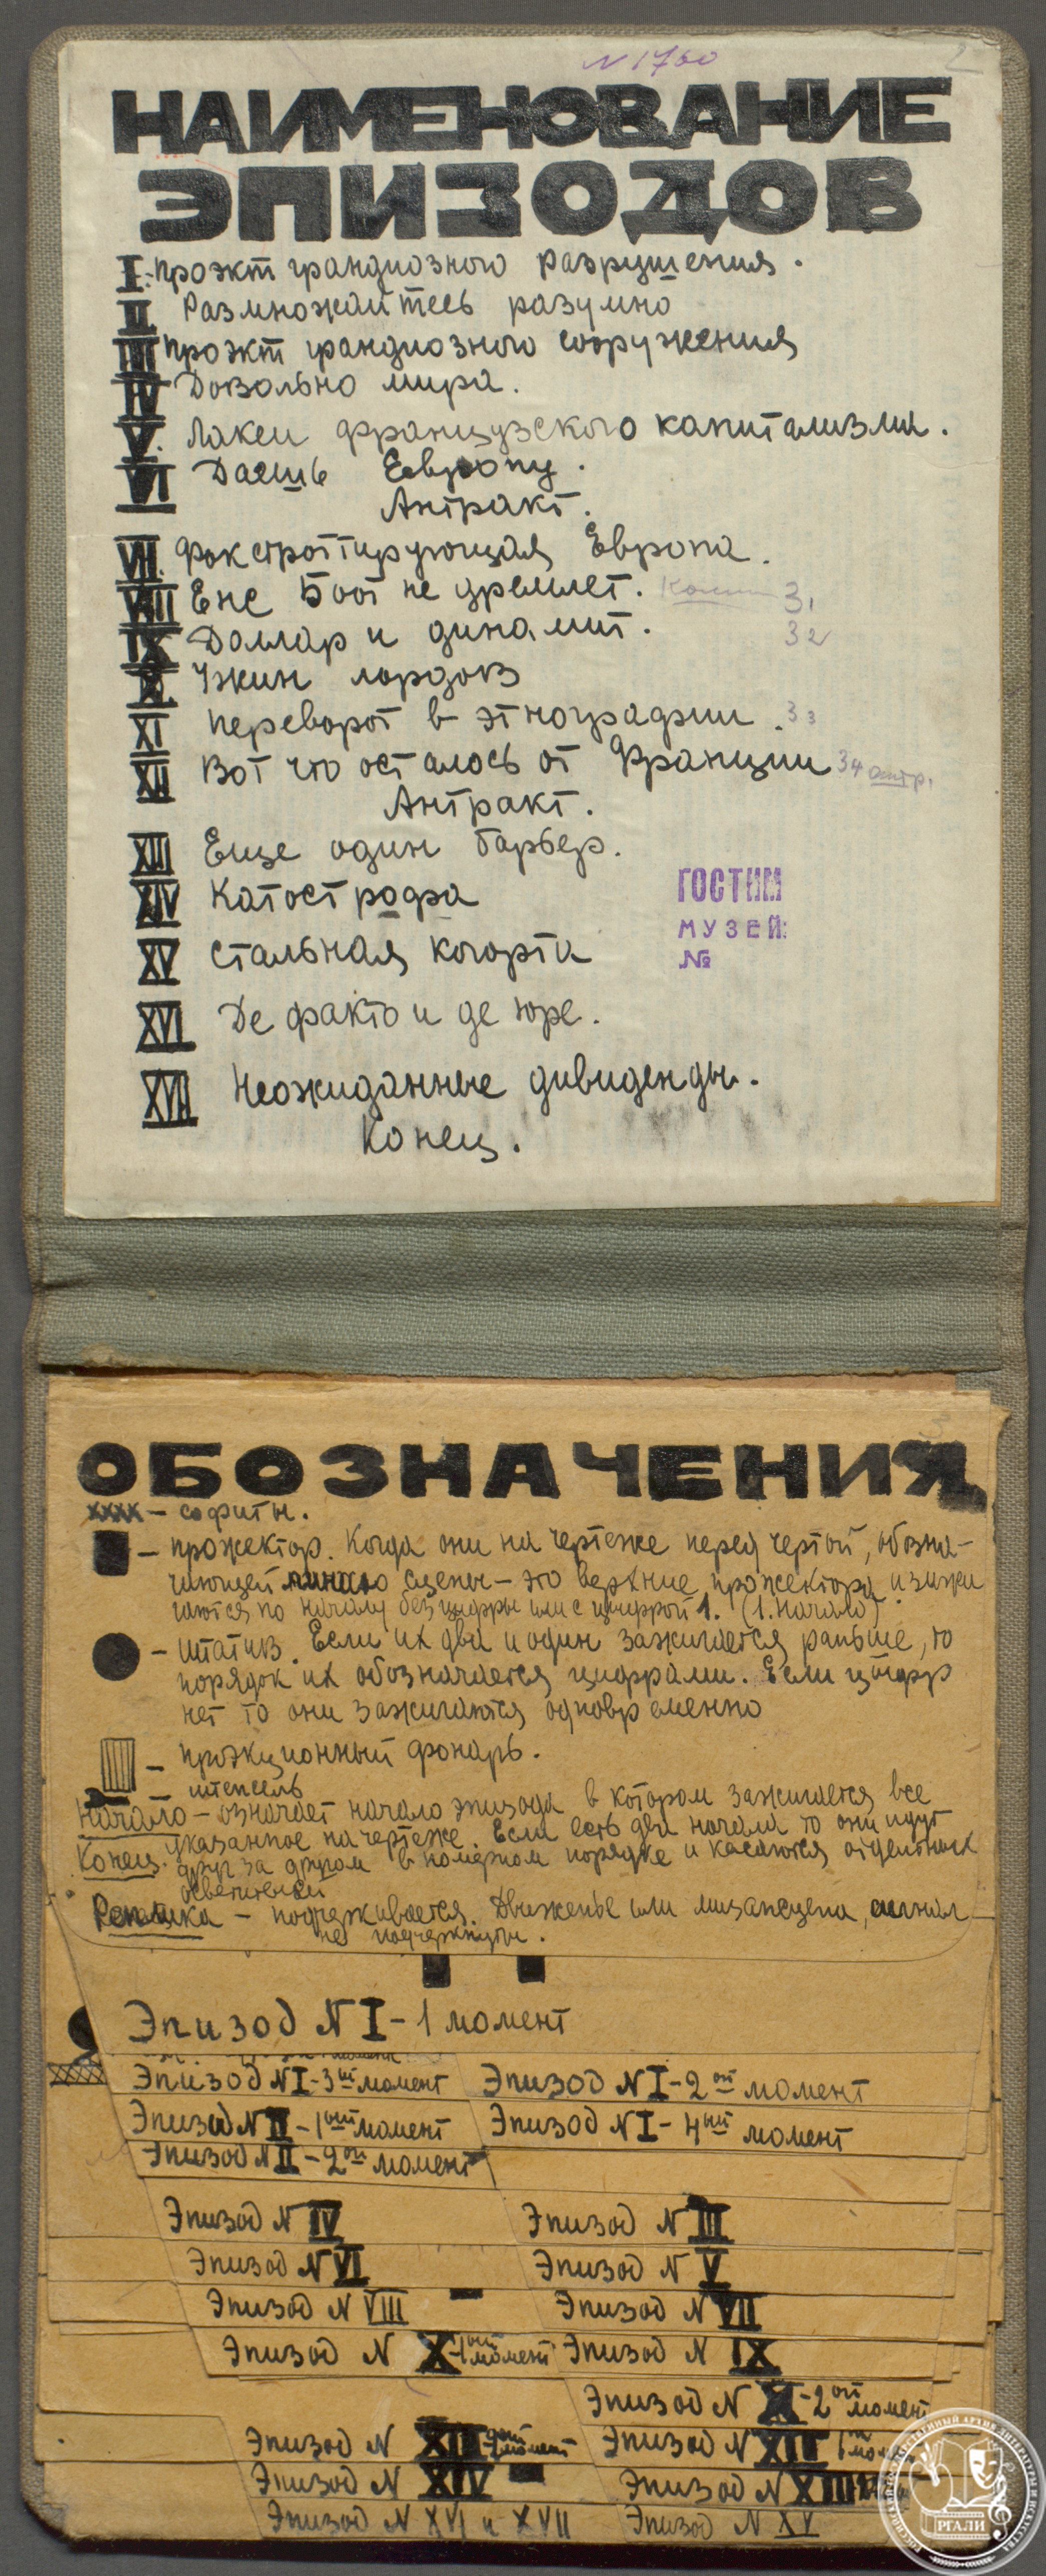 N 1760
2
НАИМЕНОВАНИЕ
ЭПИЗОДОВ
I. Проэкт грандиозного разрушения.
II Размножайтесь разумно
III Проэкт грандиозного сооружения
IV Довольно мира.
V. Лакеи французского капитализма.
VI Даешь Европу.
Антракт.
VII. Фокстротирующая Европа.
VIII Ене Боот не дремлет. 31
IX Доллар и динамит. 32
X Ужин лордов
XI Переворот в этнографии. 33
XII Вот что осталось от Франции 34 антр.
Антракт.
XIII Еще один барьер.
XIV Катострофа
XV Стальная когорта
XVI Де факто и де юре.
XVII Неожиданные дивиденды.
Конец.
ГОСТИМ
МУЗЕЙ
№
3
ОБОЗНАЧЕНИЯ
хххх – софиты.
– прожектор. Когда они на чертеже перед чертой, обозна-
чающей сцены – это верхние прожектора и зажи
гаются по началу без цифры или с цифрой 1. (1. Начало)
– штатив. Если их два и один зажигается раньше, то
порядок их обозначается цифрами. Если цифр
нет то они зажигаются одновременно
– проэкционный фонарь.
– штепсель
Начало – означает начало эпизода в котором зажигается все
указанное на чертеже. Если есть два начала то они идут
Конец. друг за другом в номерном порядке и касаются отдельных
осветителей
Реплика – подчеркивается. Движенье или мизансцена, сигнал
не подчеркнуты.
Эпизод N I – 1 момент
Эпизод N I – 3ий момент Эпизод N I – 2ой момент
Эпизод N II – 1ый момент Эпизод N I – 4ый момент
Эпизод N II – 2ой момент
Эпизод N IV Эпизод N III
Эпизод N VI Эпизод N V
Эпизод N VIII Эпизод N VII
Эпизод N X – 1ый момент Эпизод N IX
Эпизод N XI – 2ой момент
Эпизод N XII момент Эпизод N XII 1
Эпизод N XIV Эпизод N XIII
Эпизод N XVI и XVII Эпизод N XV
РОССИЙСКИЙ ГОСУДАРСТВЕННЫЙ АРХИВ ЛИТЕРАТУРЫ И ИСКУССТВА
РГАЛИ